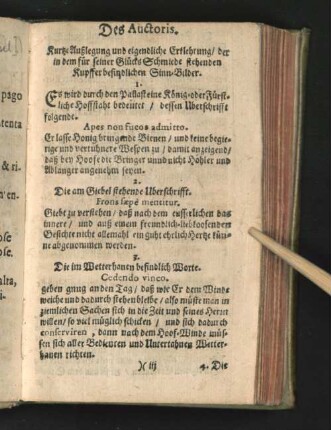 Des Auctoris.
Kurtze Außlegung und eigendliche Erklehrung / der
in dem für seiner Glücks Schmiede stehenden
Kupffer befindlichen Sinn-Bilder.
1.
Es wird durch den Pallast eine König- oder Fürst-
liche Hoffstaht bedeutet / dessen Uberschrifft
folgende.
Apes non fucos admitto.
Er lasse Honig bringende Bienen / und keine begie-
rige und verruhmte Wespen zu / damit anzeigend /
daß bey Hoofe die Bringer unnd nicht Hohler und
Ablanger angenehm seyen.
2.
Die am Giebel stehende Uberschrifft.
Frons sæpè mentitur.
Giebt zu verstehen / daß nach dem eusserlichen das
innere / und auß einem freundlich-liebkosenden
Gesichte nicht allemahl ein guht ehrlich Hertze kün-
ne abgenommen werden.
3.
Die im Wetterhanen befindlich Worte.
Cedendo vinco.
geben gnug an den Tag / daß wie Er dem Winde
weiche und dadurch stehen bleibe / also müste man in
zimlichen Sachen sich in die Zeit und seines Herrn
willen / so viel müglich schicken / und sich dadurch
conserviren, dann nach dem Hoof-Winde müs-
sen sich aller Bedienten und Untertahnen Wetter-
hanen richten.
)( iij
4. Die
pago
tenta
& ri-
en.
ose
ose.
alta,
i,